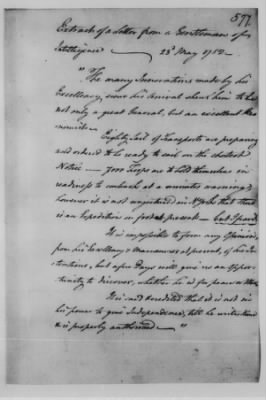 577
Extract of a Letter from a Gentleman of
Intelligence 23d May 1782
"The many Innovations made by his
Excellency, since his Arrival shews him to be
not only a great General, but an excellent
Eighty Sail of Transports are preparing
and ordered to be ready to sail on the shortest
Notice — 7000 Troops are to hold themselves in
readiness to embark at a minutes warning,
however it is not conjectured in N York that there
is an Expedition in foot at present —
It is impossible to form any Opinion
from his Excellency's Manœuvres at present, of his In-
tentions, but a few Days will give us an Oppor-
tunity to discover, whether he is for peace or War.
It is said & credited that it is not in
his power to give Independence, till he writes home
& is properly authorized — "